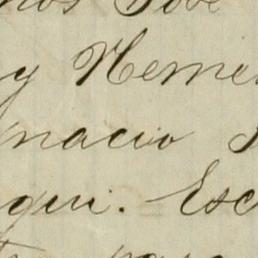 nos Jose
y Neme
nacio
qui. Esc